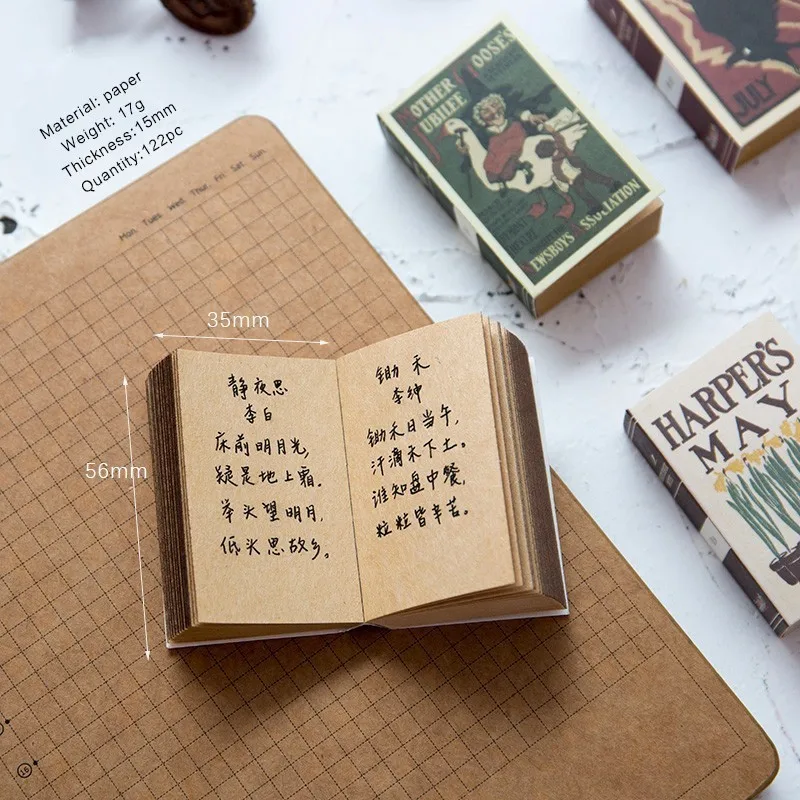 Material: paper
Weight: 17g
Thickness:15mm
Quantity:122pc
Mon Tues Wed Thur Fri Sat Sun
MOTHER GOOSE'S
JUBILEE
NEWSBOYS ASSOCIATION
JULY
HARPER'S
MAY
35mm
56mm
静夜思
李白
床前明月光,
疑是地上霜。
举头望明月,
低头思故乡。
锄禾
李绅
锄禾日当午,
汗滴禾下土。
谁知盘中餐,
粒粒皆辛苦。